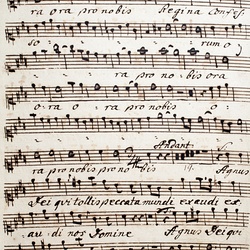 ra ora pro nobis Regina confes
so - - - - rum o
- - ra pro no - bis ora
o - ra o - ra pro nobis - o -
Andant
ra pro nobis pro no bis Agnus
Dei qui tollis peccata mundi exaudi ex
au - di nos Domine Agnus Dei qui